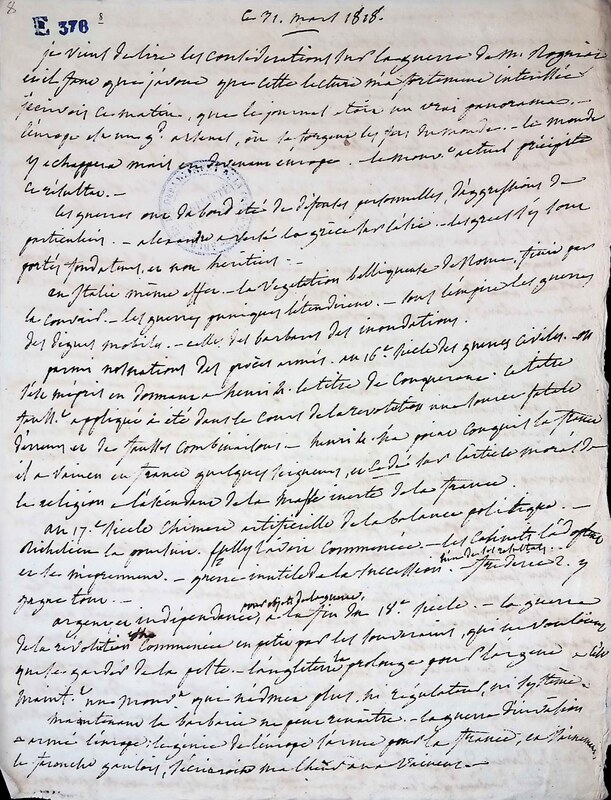 8
E 376 8
Ce 31. mars 1818.
je viens de lire les considérations sur la guerre de M. Rogniat
que j'avoue que cette lecture m'a fortement intéressée
j'écrivois ce matin, que le journal étoit un vrai panorama. –
l'europe est un gd. arsenal, où se forgent les fers du monde. – le monde
y échappera mais en devenant europe. – le mouvt. actuel précipite
ce résultat. –
les guerres ont d'abord été de disputes personnelles, d'aggressions de
particuliers. – alexandre a versé la grèce sur l'asie. – les grecs s'y sont
portés fondateurs, et non héritiers. –
en Italie même effet. – la végétation belliqueuse de Rome, finit par
la couvrir. – les guerres puniques l'étendirent. – sous l'empire les guerres
des digues mobiles. – celles des barbares des inondations.
parmi nos nations des procès armés. au 16e. siècle des guerres civiles. – on
s'est mépris en donnant à henri 4. le titre de Conquérant. Ce titre
fausst. appliqué a été dans le cours de la révolution une source fatale
d'erreurs et de fausses combinaisons. – henri 4. n'a point conquis la france
il a vaincu en france quelques seigneurs, et cédé sur l'article moral de
la religion à l'ascendant de la masse inerte de la france.
au 17.e siècle chimère artificielle de la balance politique. –
Richelieu la poursuit. Sully l'avoit commencée. – les cabinets l'adoptent
et se méprennent. – guerre inutile de la succession. frédéric 2. y
gagne tout. –
argent et indépendance, pour objets de la guerre, à la fin du 18e siècle. – la guerre
de la révolution commence en petit par les souverains, qui ne vouloient
que se garder de la peste. – l'angleterre la prolonge pour l'argent.
maint. un mouvt. qui n'admet plus, ni régulateur, ni système.
maintenant la barbarie ne peut renaître. – la guerre d'invasion
a armé l'europe: le génie de l'europe l'arme pour la france, et
le franche gaulois, s'écrieroit malheur aux vaincus. –